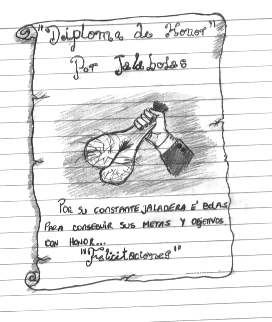 "Diploma de Honor"
Por Jala bolas
Por su constante jaladera e' bolas
para conseguir sus metas y objetivos
con honor...
"Felicitaciones"